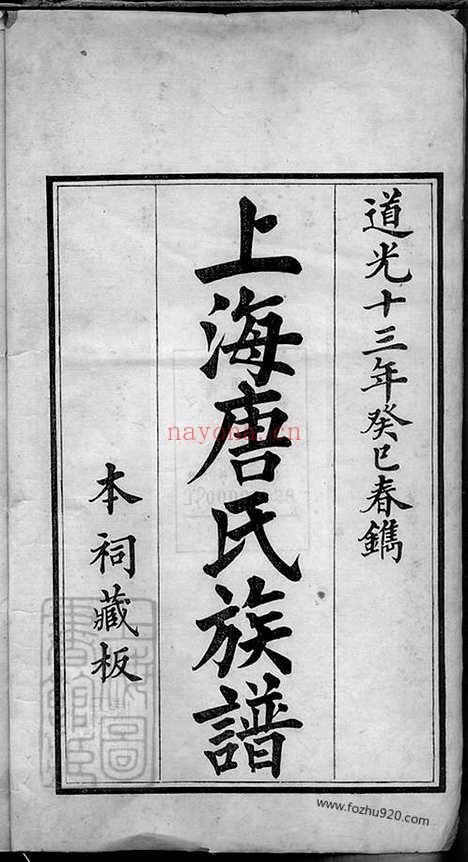 道光十三年癸巳春鐫
上海唐氏族譜
本祠藏板
nayona.cn
www.fozhu920.com